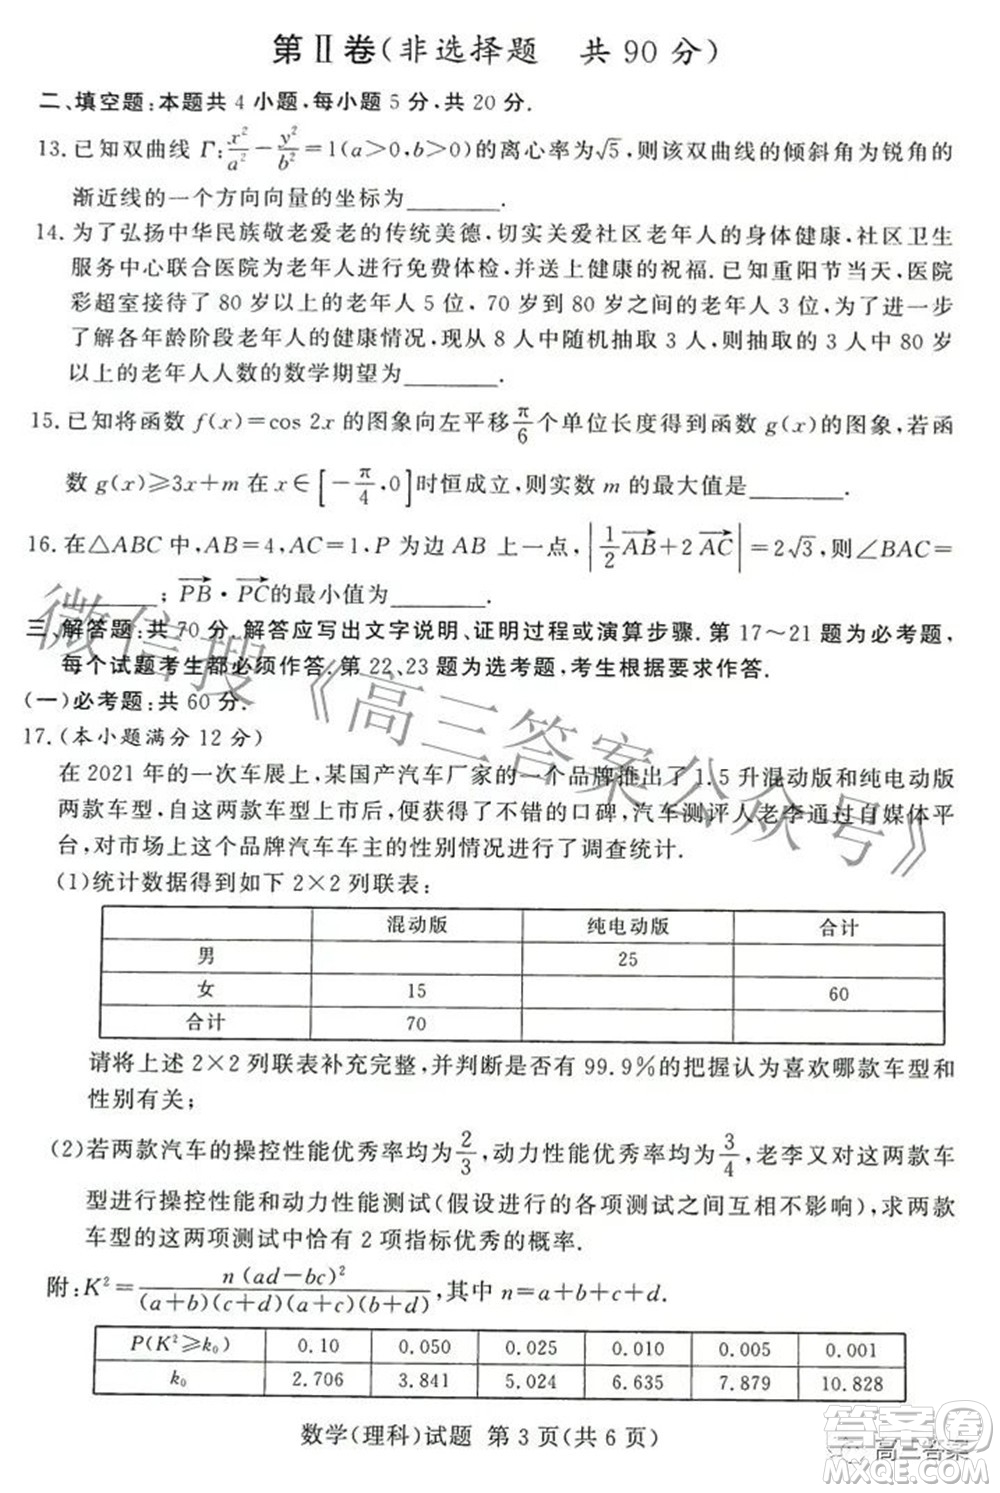 第Ⅱ卷(非选择题　共90分)
二、填空题:本题共4小题,每小题5分,共20分.
13.已知双曲线Γ:x²/a²-y²/b²=1(a>0,b>0)的离心率为√5,则该双曲线的倾斜角为锐角的
渐近线的一个方向向量的坐标为________.
14.为了弘扬中华民族敬老爱老的传统美德,切实关爱社区老年人的身体健康,社区卫生
服务中心联合医院为老年人进行免费体检,并送上健康的祝福.已知重阳节当天,医院
彩超室接待了80岁以上的老年人5位,70岁到80岁之间的老年人3位,为了进一步
了解各年龄阶段老年人的健康情况,现从8人中随机抽取3人,则抽取的3人中80岁
以上的老年人人数的数学期望为________.
15.已知将函数f(x)=cos 2x的图象向左平移π/6个单位长度得到函数g(x)的图象,若函
数g(x)≥3x+m在x∈[-π/4,0]时恒成立,则实数m的最大值是________.
16.在△ABC中,AB=4,AC=1,P为边AB上一点,|1/2 AB→+2 AC→|=2√3,则∠BAC=
________;PB→·PC→的最小值为________.
三、解答题:共70分.解答应写出文字说明、证明过程或演算步骤.第17～21题为必考题,
每个试题考生都必须作答.第22、23题为选考题,考生根据要求作答.
(一)必考题:共60分.
17.(本小题满分12分)
在2021年的一次车展上,某国产汽车厂家的一个品牌推出了1.5升混动版和纯电动版
两款车型,自这两款车型上市后,便获得了不错的口碑,汽车测评人老李通过自媒体平
台,对市场上这个品牌汽车车主的性别情况进行了调查统计.
(1)统计数据得到如下2×2列联表:
混动版 纯电动版 合计
男 25
女 15 60
合计 70
请将上述2×2列联表补充完整,并判断是否有99.9%的把握认为喜欢哪款车型和
性别有关;
(2)若两款汽车的操控性能优秀率均为2/3,动力性能优秀率均为3/4,老李又对这两款车
型进行操控性能和动力性能测试(假设进行的各项测试相互不影响),求两款
车型的这两项测试中恰有2项指标优秀的概率.
附:K²=n(ad-bc)²/(a+b)(c+d)(a+c)(b+d),其中n=a+b+c+d.
P(K²≥k₀) 0.10 0.050 0.025 0.010 0.005 0.001
k₀ 2.706 3.841 5.024 6.635 7.879 10.828
数学(理科)试题 第3页(共6页)
微信搜《高三答案公众号》
答案圈
高三答案
MXQE.COM